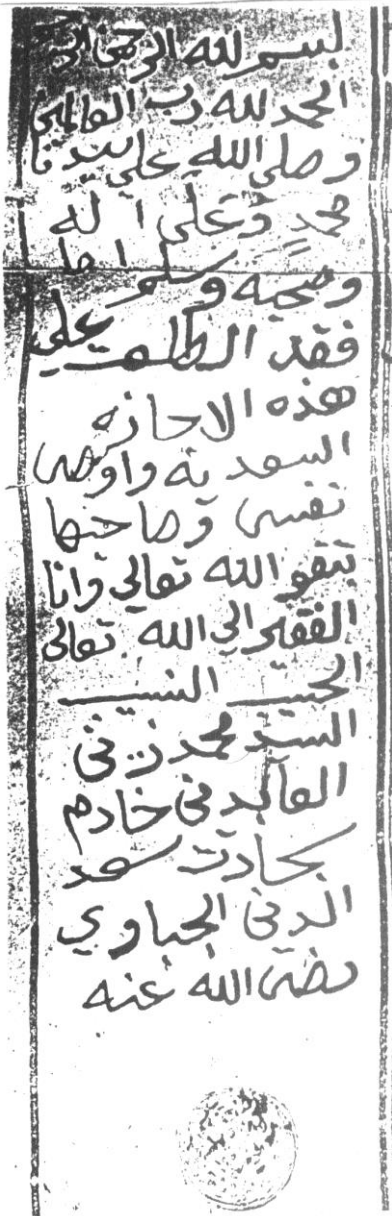 بسم الله الرحمن الرحيم
الحمد لله رب العالمين
وصلى الله على سيدنا
محمد وعلى آله
وصحبه وسلم اما
فقد اطلعت على
هذه الاجازه
السعديه واوصى
نفسى وصاحبها
بتقو الله تعالى وانا
الفقير الى الله تعالى
الحسيب النسيب
السيد محمد
خادم
سجادت سعد
الدين الجباوي
رضى الله عنه